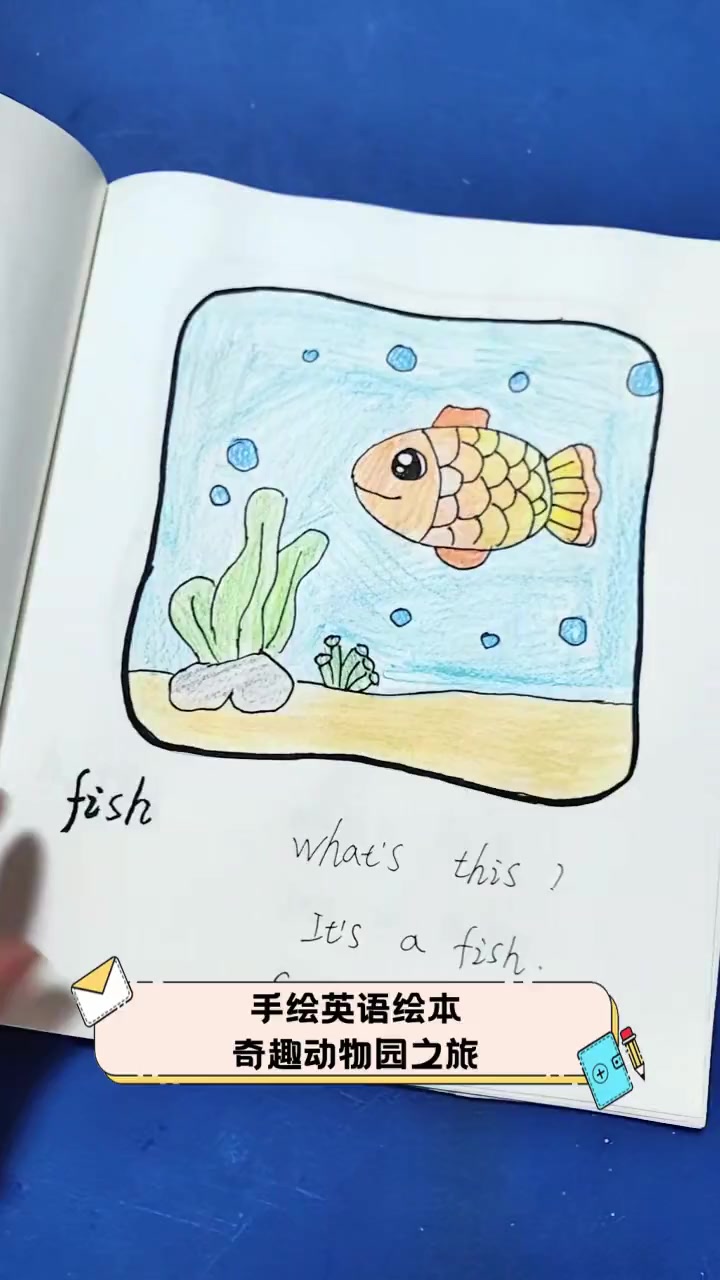 fish
what's this?
It's a fish.
手绘英语绘本
奇趣动物园之旅